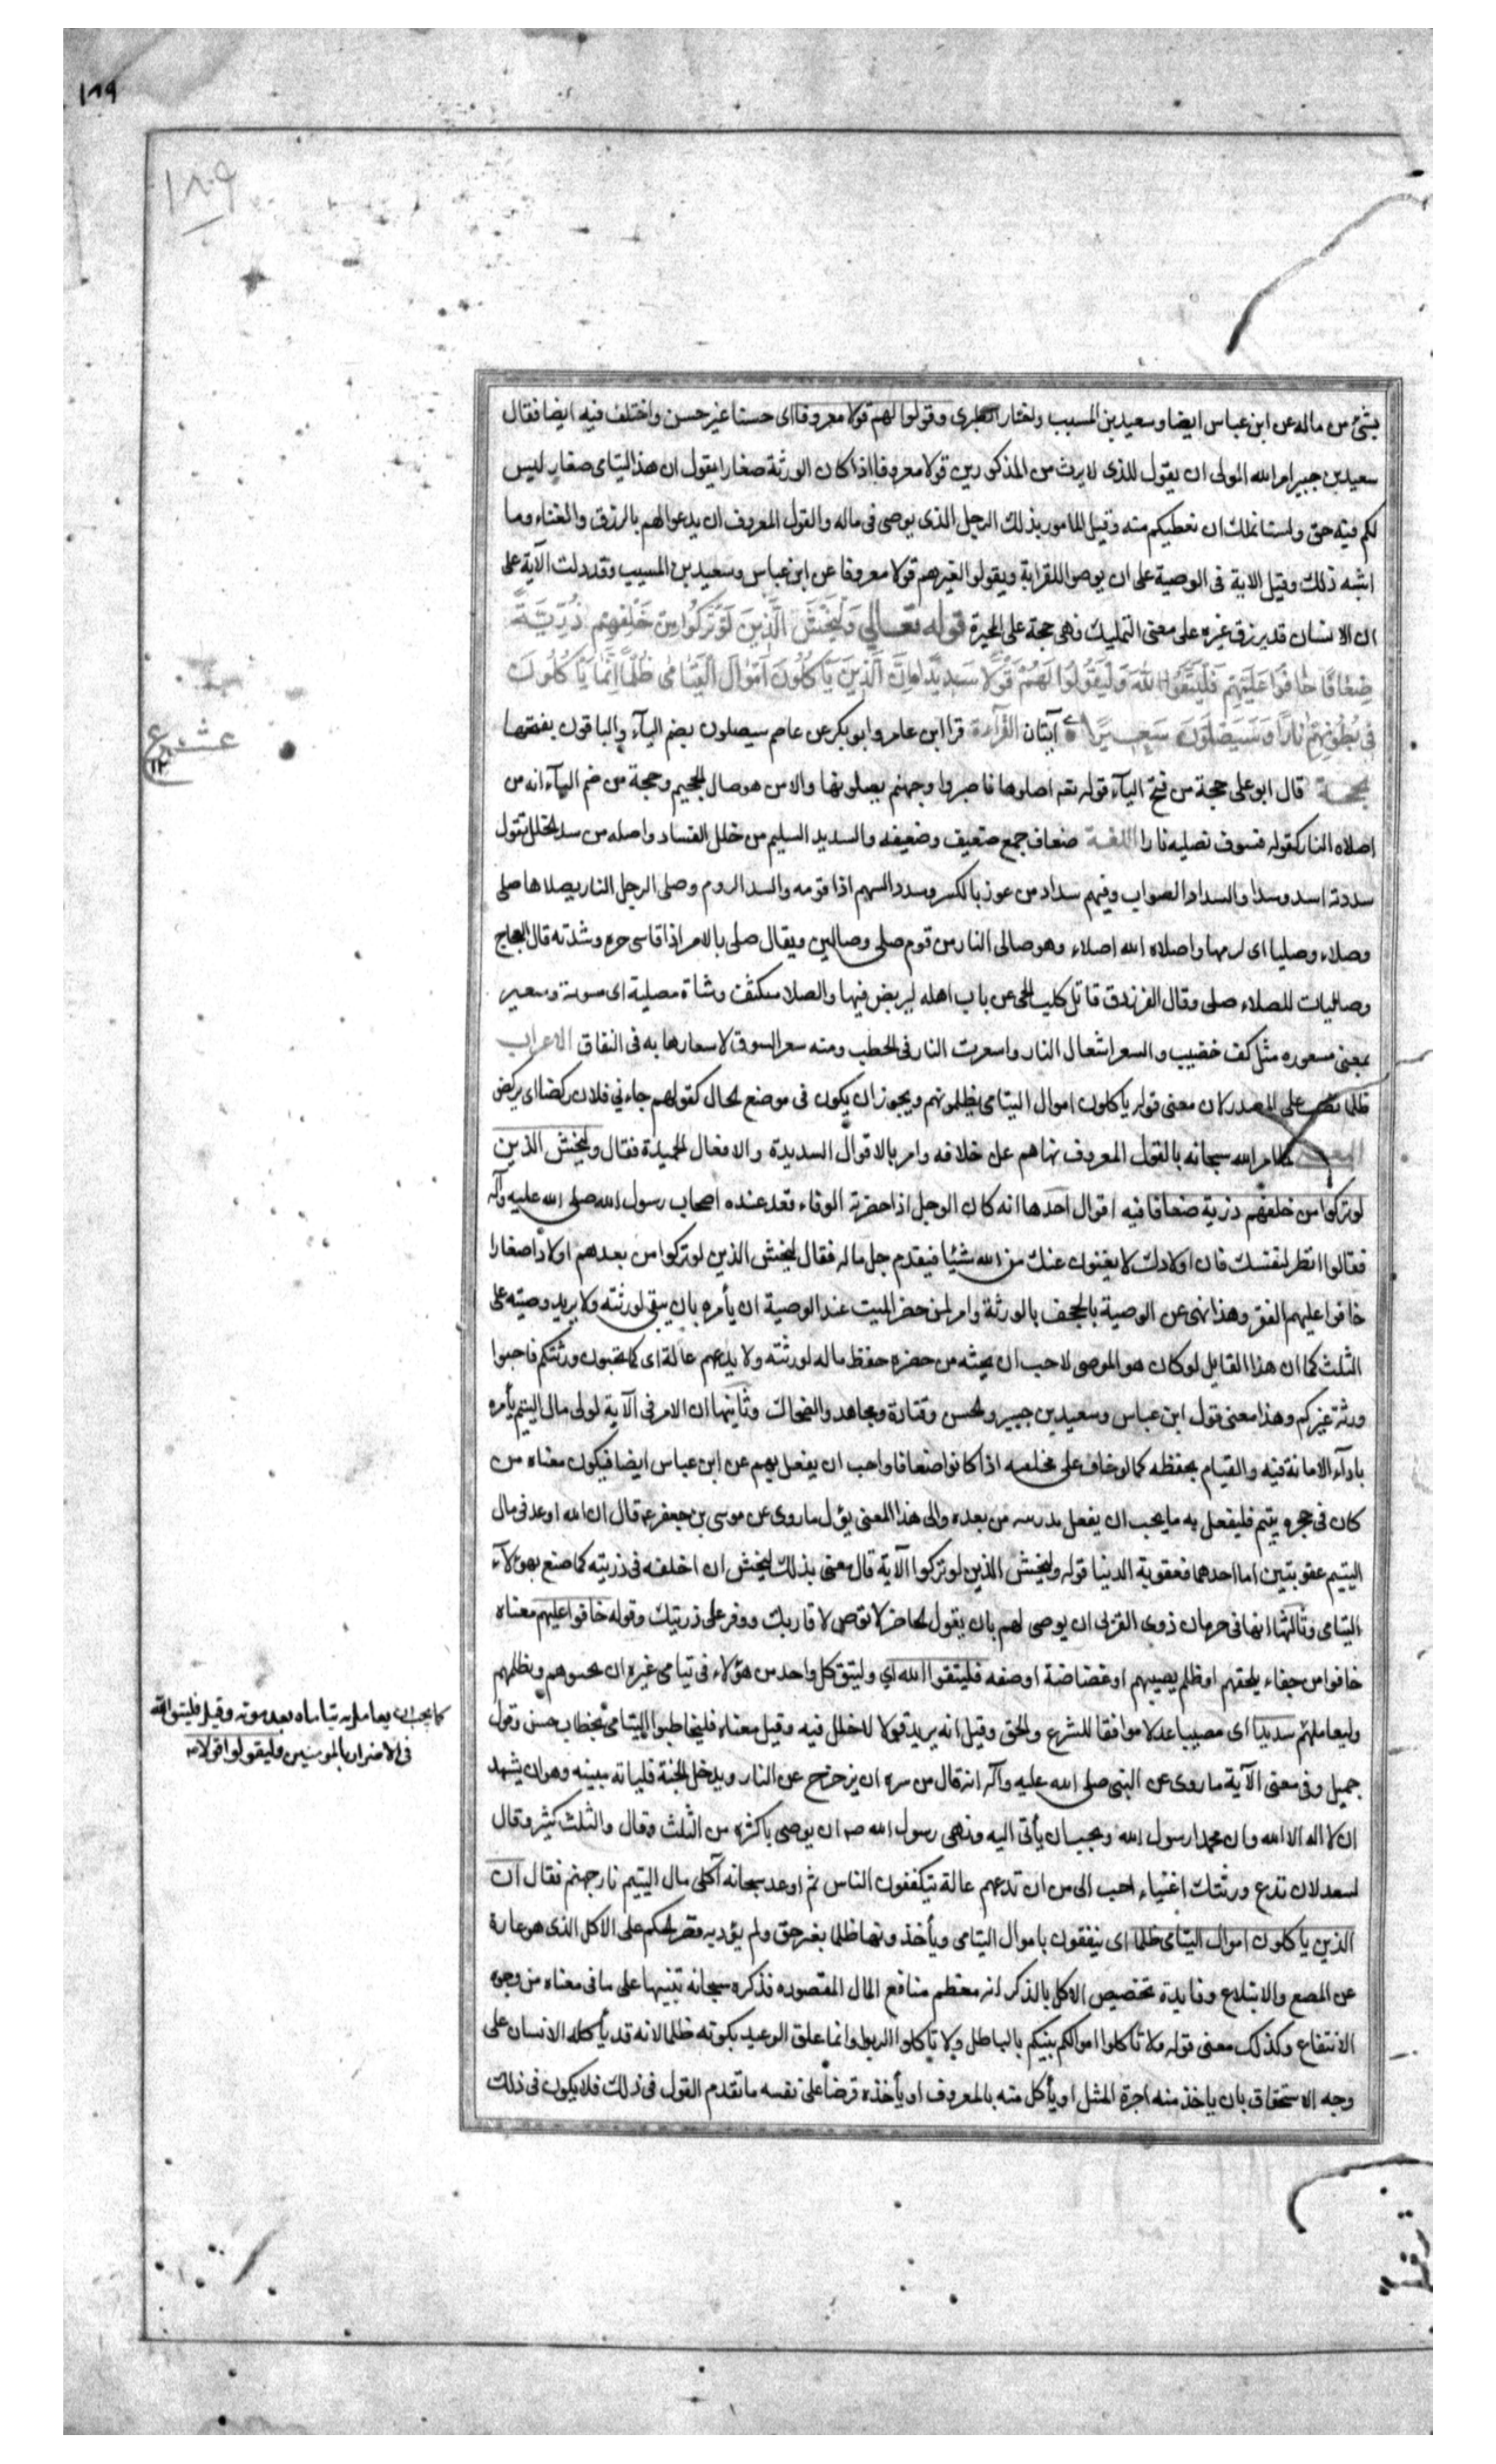 ١٨٩
١٨٩
بشئ من ماله عن ابن عباس ايضا وسعيد بن المسيب واختار الطبرى وقولوا لهم قولا معروفا اى حسنا غير حسن واختلف فيه ايضا فقال
سعيد بن جبير امر الله المولى ان يقول للذى لا يرث من المذكورين قولا معروفا اذا كان الورثة صغارا يقول ان هذا اليتامى صغار ليس
لكم فيه حق ولسنا نملك ان نعطيكم منه وقيل المامور بذلك الرجل الذى يوصى فى ماله والقول المعروف ان يدعوا لهم بالرزق والغناء وما
اشبه ذلك وقيل الاية فى الوصية على ان يوصوا للقرابة ويقولوا لغيرهم قولا معروفا عن ابن عباس وسعيد بن المسيب وقد دلت الآية على
ان الانسان قد يرزق غيره على معنى التمليك فهى حجة على المجبرة قوله تعالي وَلْيَخْشَ الَّذِينَ لَوْ تَرَكُوا مِنْ خَلْفِهِمْ ذُرِّيَّةً
ضِعَافًا خَافُوا عَلَيْهِمْ فَلْيَتَّقُوا اللهَ وَلْيَقُولُوا لَهُمْ قَوْلًا سَدِيدًا اِنَّ الَّذِينَ يَأْكُلُونَ اَمْوَالَ الْيَتَامٰى ظُلْمًا اِنَّمَا يَأْكُلُونَ
فِى بُطُونِهِمْ نَارًا وَسَيَصْلَوْنَ سَعِيرًا آيتان القرآءة قرا ابن عامر وابو بكر عن عاصم سيصلون بضم اليآء والباقون بفتحها
عشر ع
الحجة قال ابو على حجة من فتح اليآء قوله تعه اصلوها فاصبروا وجهنم يصلونها والا من هو صال الجحيم وحجة من ضم اليآء انه من
اصلاه النار كقوله فسوف نصليه نارا اللغة ضعاف جمع ضعيف وضعيفه والسديد السليم من خلل الفساد واصله من سد الخلل تقول
سددته اسده سدا والسداد الصواب وفيهم سداد من عوز بالكسر وسدد السهم اذا قومه والسد الردم وصلى الرجل النار يصلاها صلى
وصلاء وصليا اى لزمها واصلاه الله اصلاء وهو صالى النار من قوم صلى وصالين ويقال صلى بالامر اذا قاسى حره وشدته قال العجاج
وصاليات للصلاء صلى وقال الفرزدق قاتل كلب الحى عن باب اهله ليربض فيها والصلا متكنف وشاة مصلية اى مشوية وسعير
بمعنى مسعوره مثل كف خضيب والسعر اشعال النار واسعرت النار فى الحطب ومنه سعر السوق لاسعارها به فى النفاق الاعراب
ظلما نصب على المصدر لان معنى قوله ياكلون اموال اليتامى يظلمونهم ويجوز ان يكون فى موضع الحال كقولهم جاءني فلان ركضا اى يركض
المعنى لما امر الله سبحانه بالقول المعروف نهاهم عن خلافه وامر بالاقوال السديدة والافعال الحميدة فقال وليخش الذين
لو تركوا من خلفهم ذرية ضعافا فيه اقوال احدها انه كان الرجل اذا حضرته الوفاء قعد عنده اصحاب رسول الله صلى الله عليه وآله
فقالوا انظر لنفسك فان اولادك لا يغنون عنك من الله شيئا فيقدم جل ماله فقال ليخش الذين لو تركوا من بعدهم اولادا صغارا
خافوا عليهم الفقر وهذا نهى عن الوصية بالمجحف بالورثة وامر لمن حضر الميت عند الوصية ان يأمره بان يبقى لورثته ولا يريد وصيته على
الثلث كما ان هذا القايل لو كان هو الموصى لاحب ان يحثه من حضره حفظ ماله لورثته ولا يدعهم عالة اى كما تحبون ورثتكم فاحبوا
ورثة غيركم وهذا معنى قول ابن عباس وسعيد بن جبير والحسن وقتادة ومجاهد والضحاك وثانيها ان الامر فى الآية لولى مال اليتيم يأمره
بادآء الامانة فيه والقيام بحفظه كما لو خاف على مخلفيه اذا كانوا ضعافا واحب ان يفعل بهم عن ابن عباس ايضا فيكون معناه من
كان فى حجره يتيم فليفعل به ما يحب ان يفعل بذريته من بعده والى هذا المعنى يؤل ما روى عن موسى بن جعفر ع قال ان الله اوعد فى مال
اليتيم عقوبتين اما احدهما فعقوبة الدنيا قوله وليخش الذين لو تركوا الآية قال معنى بذلك ليخش ان اخلفه فى ذريته كما صنع بهؤلآء
اليتامى وثالثها انها فى حرمان ذوى القربى ان يوصى لهم بان يقول الحاضر لا توص لاقاربك ووفر على ذريتك وقوله خافوا عليهم معناه
خافوا من جفاء يلحقهم او ظلم يصيبهم او غضاضة او ضعفه فليتقوا الله اي وليتق كل واحد من هؤلاء فى يتامى غيره ان يحسوهم ويظلمهم
وليعاملهم سديدا اى مصيبا عدلا موافقا للشرع والحق وقيل انه يريد قولا لا خلل فيه وقيل معناه فليخاطبوا اليتامى بخطاب حسن وقول
جميل وفى معنى الآية ما روى عن النبى صلى الله عليه وآله انه قال من سره ان يزحزح عن النار ويدخل الجنة فلياته منيته وهو ان يشهد
ان لا اله الا الله وان محمدا رسول الله ويحب ان يأتى اليه ونهى رسول الله صه ان يوصى باكثره من الثلث وقال والثلث كثير وقال
لسعد لان تدع ورثتك اغنياء احب الى من ان تدعهم عالة يتكففون الناس ثم اوعد سبحانه آكلى مال اليتيم نار جهنم فقال ان
الذين ياكلون اموال اليتامى ظلما اى ينفقون باموال اليتامى ويأخذونها ظلما بغير حق ولم يؤد به قصر الحكم على الاكل الذى هو عبارة
عن المضع والابتلاع وفايدة تخصيص الاكل بالذكر انه معظم منافع المال المقصوده فذكره سبحانه تنبيها على ما فى معناه من وجوه
الانتفاع وكذلك معنى قوله ولا تأكلوا اموالكم بينكم بالباطل ولا تأكلوا الربوا وانما علق الوعيد بكونه ظلما لانه قد يأكله الانسان على
وجه الاستحقاق بان ياخذ منه اجرة المثل او يأكل منه بالمعروف او يأخذه قرضا على نفسه ما تقدم القول فى ذلك فلا يكون فى ذلك
كما يجب ان يعامل به يتاماه بعد موته وقيل فليتقوا الله
فى الاضرار بالمومنين وليقولوا قولا